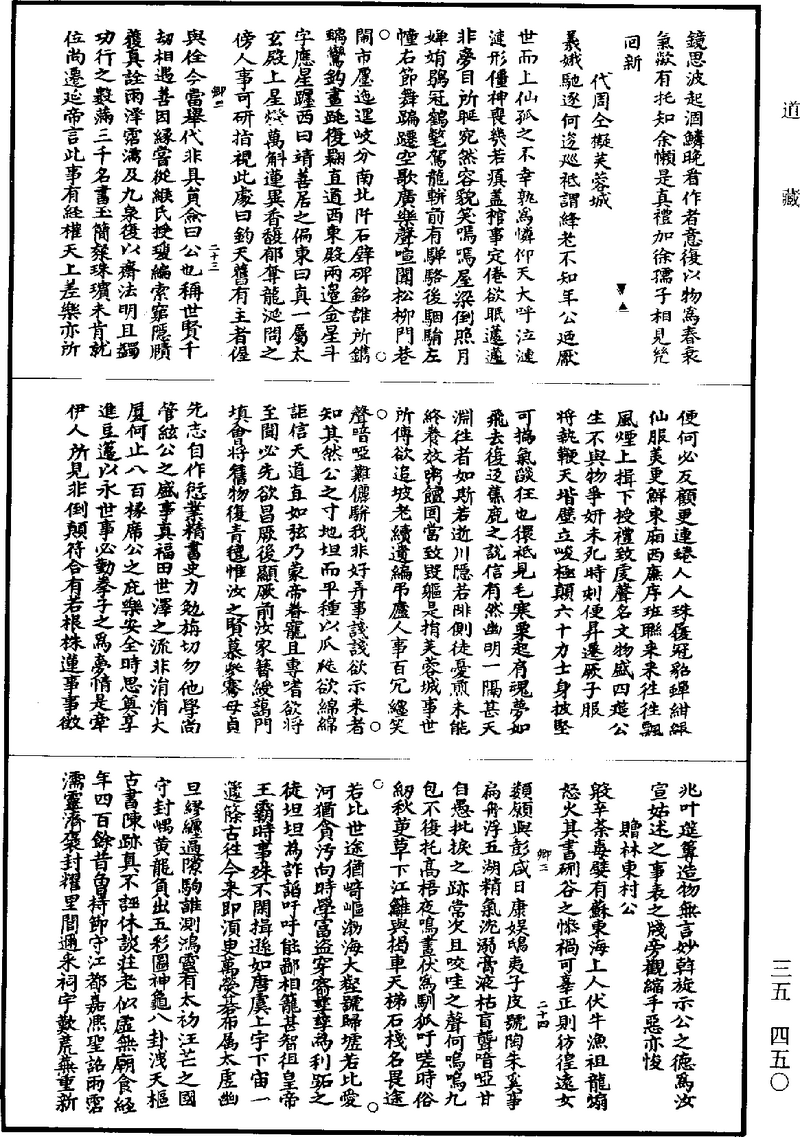 道藏
鏡思波起涸鱗晚看作者意復以物為春衰
氣欲有托知余懶是真禮加徐孺子相見幾
回新
代周仝擬芙蓉城
羲娥馳逐何逡巡祗謂絳老不知年公迺厭
世而上仙孤之不幸執為憐仰天大呼泣漣
漣形僵神喪幾若瘨蓋棺事定倦欲眠邁邁
非旁目所睚宛然容貌笑嗎嗎屋梁倒照月
嬋娟鶡冠鶴氅駕龍軿前有騨駱後駰騚左
幢右節舞蹁躚空歌廣樂聲喧闐松柳門巷
鬧市廛迤邐岐分南北阡石壁碑銘誰所鐫
螭鸞鉤畫跳復翾直道西東殿兩邊金星斗
字應星躔西曰靖善居之偏東曰真一屬太
玄殿上星燈萬斛蓮異香馥郁奪龍涎問之
傍人事可研指視此處曰鈞天舊有主者偓
與佺今當舉代非具員僉曰公也稱世賢千
劫相遇善因緣當從緱氏授瓊編索窮隱賾
覆真詮雨澤霑濡及九泉復以齋法明且蠲
功行之數滿三千名書玉簡粲珠璸未肯就
位尚遷延帝言此事有經權天上差樂亦所
便何必反顧更連蜷人人珠履冠貂蟬紺綠
仙服美更鮮東廂西廡序班聯來來往往飄
風煙上揖下授禮致虔聲名文物盛四筵公
生不與物爭妍未死時刻便昇遷厥子服
將執鞭天堦壁立峻極顛六十力士身披堅
可搊氣燄狂也獧祗見毛寒粟起肩魂夢如
飛去復還蕉鹿之說信有然幽明一隔甚天
淵往者如斯若逝川隱若陫側徒憂煎未能
終養放粥饘固當致毀軀是捐芙蓉城事世
所傳欲追坡老續遺編吊盧人事百冗纏笑
聲喑啞難儷駢我非好弄事諓諓欲示來者
知其然公之寸地坦而平種以瓜瓞欲綿綿
詎信天道直如弦乃蒙帝眷寵且專嗜欲將
至開必先欲昌厥後顯厥前汝家簪綬藹門
填會將舊物復青氊惟汝之賢慕參騫毋貞
先志自作愆業精書史力勉旃切勿他學尚
管絃公之盛事真福田世澤之流非涓涓大
厦何止八百椽席公之庇樂安全時思奠享
進豆籩以永世事必勤拳子之為夢情是牽
伊人所見非倒顛符合有若根株蓮事事徵
兆叶選篿造物無言妙斡旋示公之德為汝
宣姑述之事表之牋旁觀縮手惡亦悛
贈林東村公
殽辛荼毒嬖有蘇東海上人伏牛漁祖龍煽
怒火其書硎谷之慘禍可辜正則彷徨遠女
嬃願與彭咸日康娛鴟夷子皮號陶朱奚事
扁舟浮五湖精氣沉溺膏液枯盲聾喑啞甘
自愚批挨之跡常欠且咬哇之聲何嗚嗚九
包不復托高梧夜鳴晝伏為馴狐吁嗟時俗
紉秋茰草下江蘺與揭車天梯石棧名畏途
若比世途猶崎嶇渤海大壑號歸墟若比愛
河猶貪污向時學富盜穿窬孳孳為利跖之
徒坦坦為詐謟吁吁能鄙相籠甚智狙皇帝
王霸時事殊不閑揖遜如唐虞上宇下宙一
籧篨古往今來即須臾萬象碁布属太虛幽
旦繆纏過隙駒誰測鴻靈有太初汪芒之國
守封嵎黃龍負出五彩圖神龜八卦洩天樞
古書陳跡真不誣休談莊老似虛無廟食經
年四百餘昔魯持節守江都嘉熈聖詔雨霑
濡靈濟褒封耀里閭邇來祠宇歎荒蕪重新
鄉二
二十三
鄉三
二十四
三五 四五〇